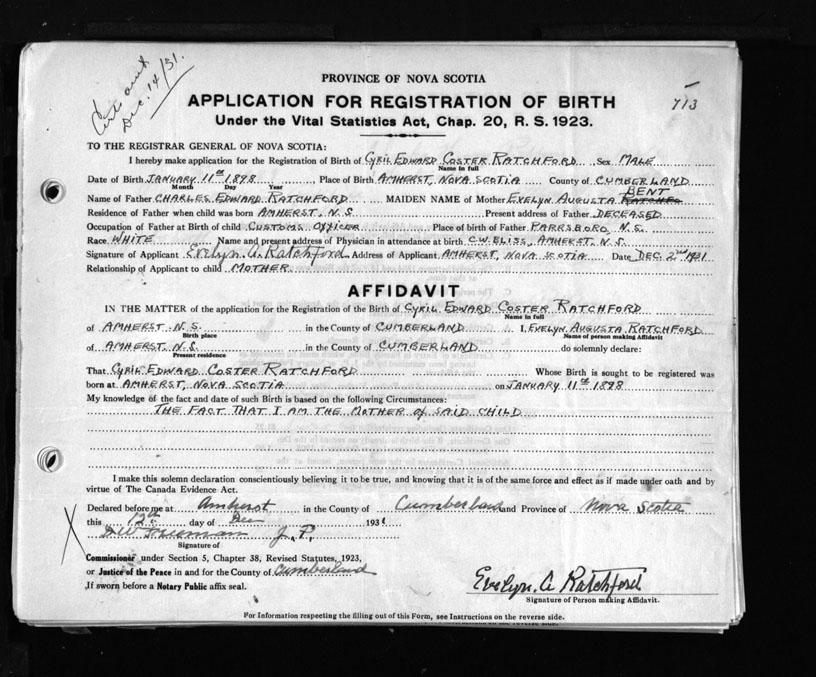 Cert. sent
Dec. 14/31.
PROVINCE OF NOVA SCOTIA
713
APPLICATION FOR REGISTRATION OF BIRTH
Under the Vital Statistics Act, Chap. 20, R. S. 1923.
TO THE REGISTRAR GENERAL OF NOVA SCOTIA:
I hereby make application for the Registration of Birth of CYRIL EDWARD COSTER RATCHFORD Sex MALE
Name in full
Date of Birth JANUARY 11th 1898 Place of Birth AMHERST, NOVA SCOTIA County of CUMBERLAND
Month Day Year
BENT
Name of Father CHARLES EDWARD RATCHFORD MAIDEN NAME of Mother EVELYN AUGUSTA
Residence of Father when child was born AMHERST, N.S. Present address of Father DECEASED
Occupation of Father at Birth of child CUSTOMS OFFICER Place of birth of Father PARRSBORO, N.S.
Race WHITE Name and present address of Physician in attendance at birth C.W. BLISS, AMHERST, N.S.
Signature of Applicant Evelyn A. Ratchford Address of Applicant AMHERST, NOVA SCOTIA Date DEC. 2nd 1931
Relationship of Applicant to child MOTHER
AFFIDAVIT
IN THE MATTER of the application for the Registration of the Birth of CYRIL EDWARD COSTER RATCHFORD
Name in full
of AMHERST N.S. in the County of CUMBERLAND I, EVELYN AUGUSTA RATCHFORD
Birth place Name of person making Affidavit
of AMHERST N.S. in the County of CUMBERLAND do solemnly declare:
Present residence
That CYRIL EDWARD COSTER RATCHFORD Whose Birth is sought to be registered was
born at AMHERST, NOVA SCOTIA on JANUARY 11th 1898
My knowledge of the fact and date of such Birth is based on the following Circumstances:
THE FACT THAT I AM THE MOTHER of SAID CHILD
I make this solemn declaration conscientiously believing it to be true, and knowing that it is of the same force and effect as if made under oath and by
virtue of The Canada Evidence Act.
Declared before me at Amherst in the County of Cumberland and Province of Nova Scotia
this 12th day of Dec 1931
X
J.P.
Signature of
Commissioner under Section 5, Chapter 38, Revised Statutes, 1923,
or Justice of the Peace in and for the County of Cumberland
If sworn before a Notary Public affix seal.
Evelyn. A Ratchford
Signature of Person making Affidavit.
For Information respecting the filling out of this Form, see Instructions on the reverse side.